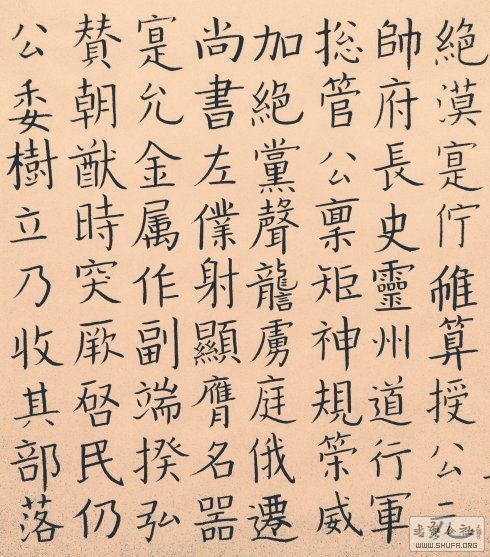 絕漠寔佇帷算授公元
帥府長史靈州道行軍
捴管公禀矩神規筞威
加絕黨聲讋虜庭俄遷
尚書左僕射顯膺名器
寔允金属作副端揆弘
賛朝猷時突厥啓民仍
公委樹立乃收其部落
WWW.SHUFA.ORG